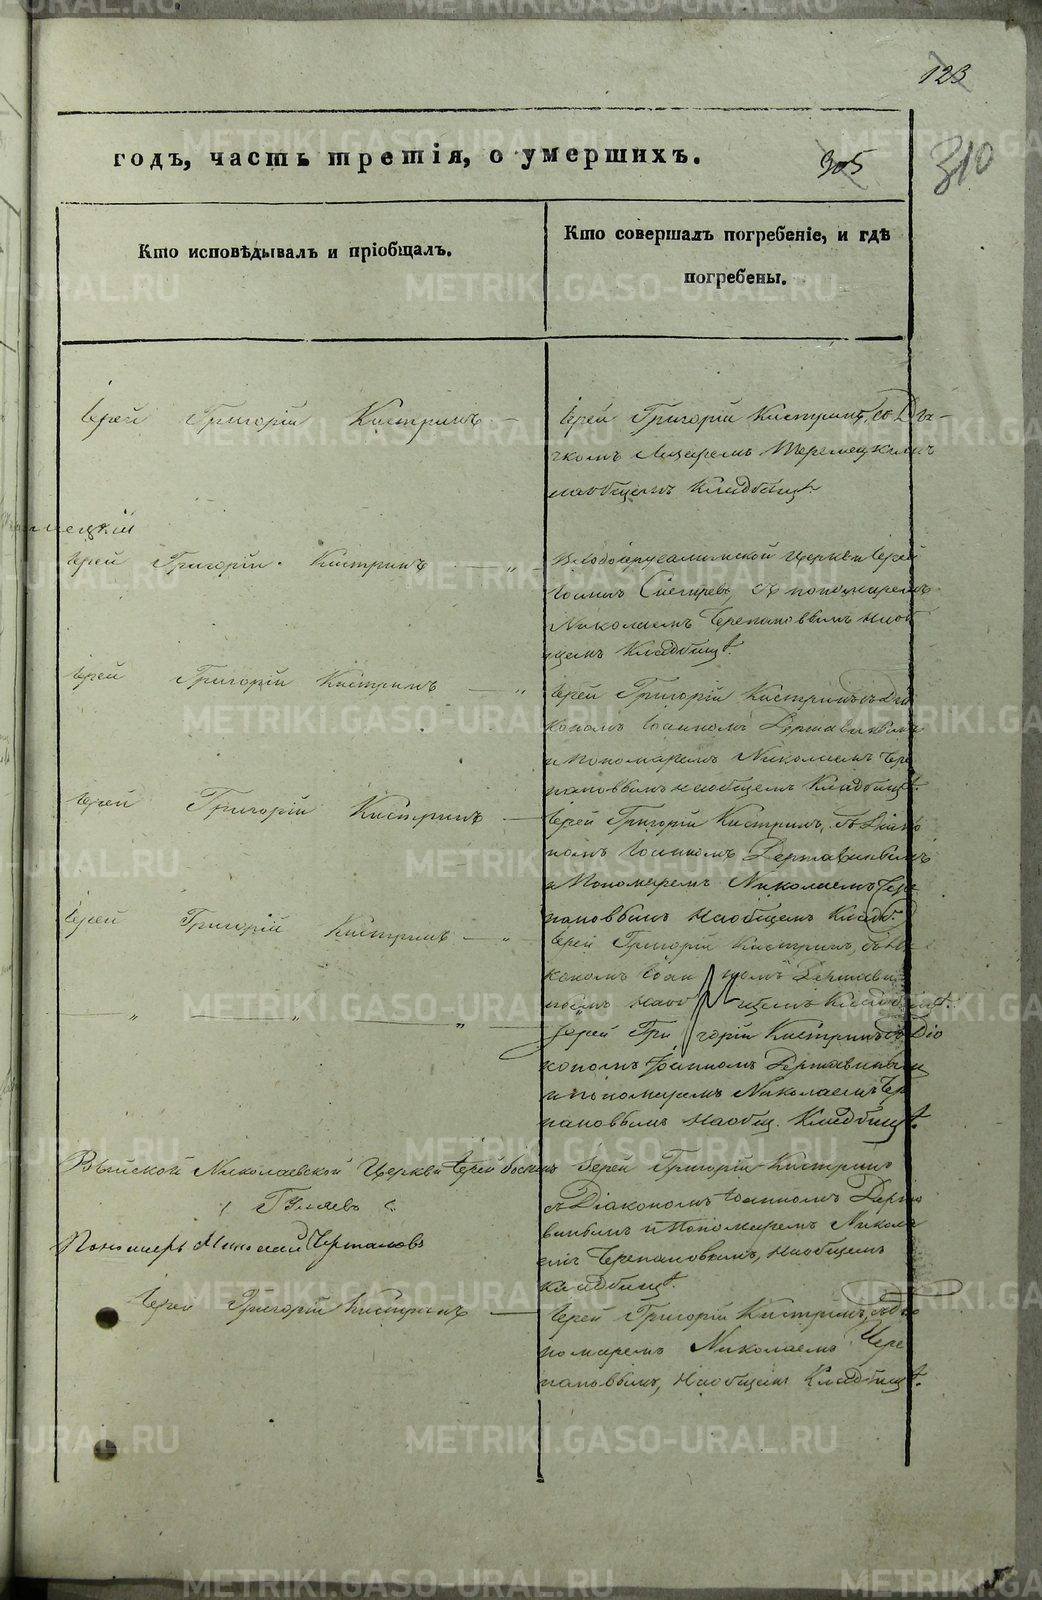 123
годъ, часть третія, о умершихъ.
305
310
Кто исповѣдывалъ и пріобщалъ.
Кто совершалъ погребеніе, и гдѣ
погребены.
Іерей Григорій Кистринъ
Іерей Григорій Кистринъ, съ Дья-
чкомъ
наобщемъ Кладбищѣ.
Іерей Григорій Кистринъ
Новоіерусалимской церкви Іерей
Іоаннъ Снегиревъ, съ пономаремъ
Николаемъ Черепановымъ наоб
щемъ Кладбищѣ.
Іерей Григорій Кистринъ
Іерей Григорій Кистринъ съ Діа
кономъ Іоанномъ Державинымъ
и Пономаремъ Николаемъ Чере
пановымъ наобщемъ Кладбищѣ.
Іерей Григорій Кистринъ
Іерей Григорій Кистринъ, съ Діако
номъ Іоанномъ Державинымъ
и Пономаремъ Николаемъ Чере
пановымъ наобщемъ Кладб.
Іерей Григорій Кистринъ
Іерей Григорій Кистринъ, съ Діа
кономъ Іоанномъ Держави
нымъ наобщемъ Кладбищѣ.
Іерей Григорій Кистринъ съ Діа
кономъ Іоанномъ Державинымъ
и пономаремъ Николаемъ Чере
пановымъ наобщ. Кладбищѣ.
Выйской Николаевской Церкви Іерей Іоаннъ
Гуляевъ
Пономарь Николай Черпановъ
Іерей Григорій Кистринъ
съ Діакономъ Іоанномъ Держа
винымъ и Пономаремъ Никола
емъ Черепановымъ, наобщемъ
кладбищѣ.
Іерей Григорій Кистринъ
Іерей Григорій Кистринъ, съ По
номаремъ Николаемъ Чере
пановымъ, наобщемъ Кладбищѣ.
METRIKI.GASO-URAL.RU